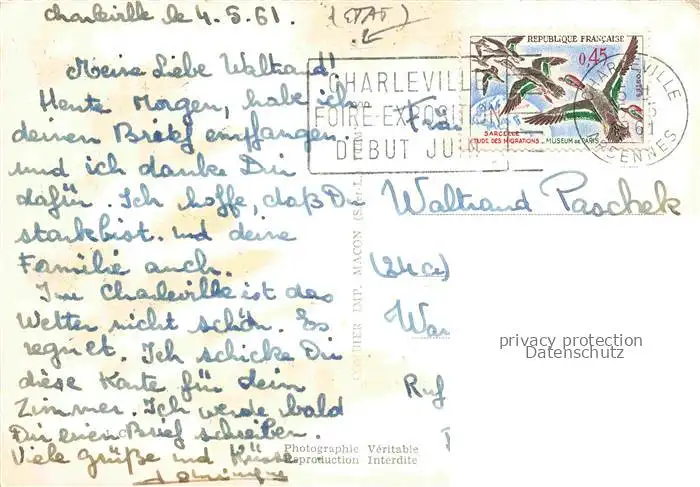 Charleville le 4.5.61.
(ETAT)
Meine Liebe Waltraud!
Heute Morgen, habe ich
deinen Brief empfangen.
und ich danke Dir
dafür. Ich hoffe, daß Du
stark bist. und deine
Familie auch.
Im Charleville ist das
Wetter nicht schön. Es
regnet. Ich schicke Dir
diese Karte für dein
Zimmer. Ich werde bald
Dir einen Brief schreiben.
Viele Grüße und Küsse
Dominique
CHARLEVILLE
FOIRE-EXPOSITION
DEBUT JUIN
REPUBLIQUE FRANÇAISE
0,45
SARCELLE
ETUDE DES MIGRATIONS - MUSEUM DE PARIS
CHARLEVILLE
ARDENNES
Waltraud Paschek
IMP. MACON
privacy protection
Datenschutz
Photographie Véritable
Reproduction Interdite